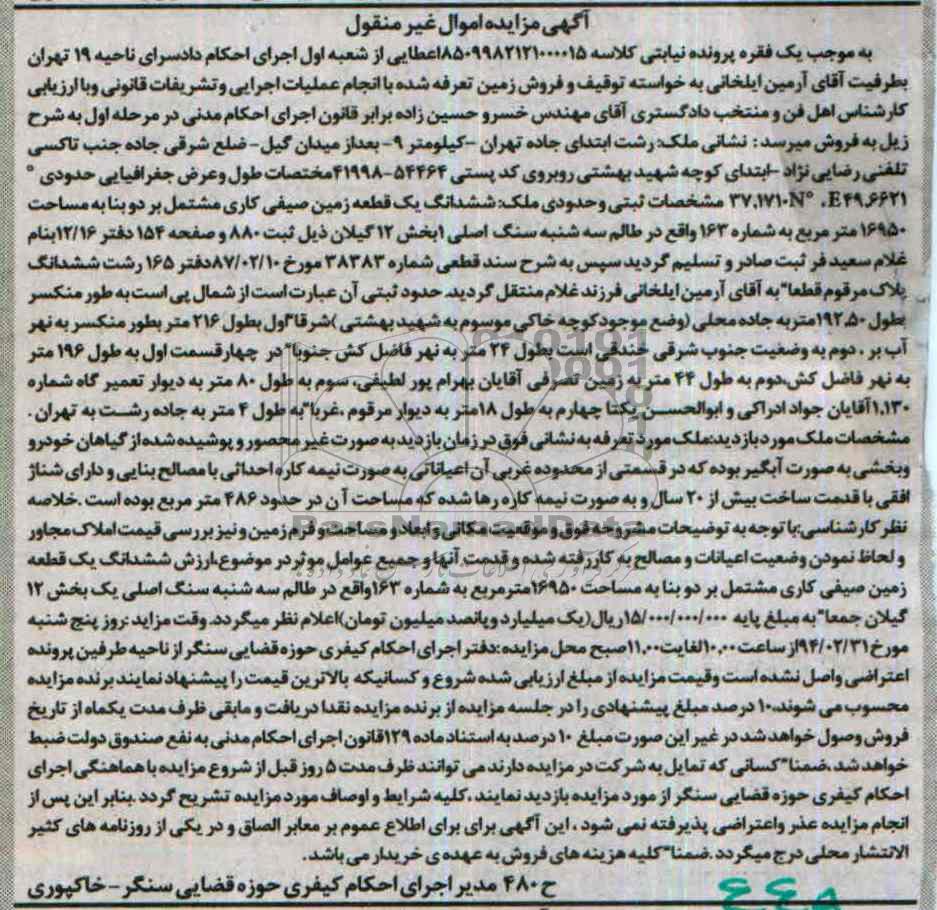 آگهی مزایده اموال غیر منقول
به موجب یک فقره پرونده نیابتی کلاسه ۸۵۰۹۹۸۲۱۲۱۰۰۰۰۱۵اعطایی از شعبه اول اجرای احکام دادسرای ناحیه ۱۹ تهران
بطرفیت آقای آرمین ایلخانی به خواسته توقیف و فروش زمین تعرفه شده با انجام عملیات اجرایی و تشریفات قانونی و با ارزیابی
کارشناس اهل فن و منتخب دادگستری آقای مهندس خسرو حسین زاده برابر قانون اجرای احکام مدنی در مرحله اول به شرح
زیل به فروش میرسد : نشانی ملک: رشت ابتدای جاده تهران -کیلومتر ۹- بعداز میدان گیل- ضلع شرقی جاده جنب تاکسی
تلفنی رضایی نژاد -ابتدای کوچه شهید بهشتی روبروی کد پستی ۵۴۴۶۴-۴۱۹۹۸مختصات طول وعرض جغرافیایی حدودی °
E۴۹,۶۶۲۱ ، N° ۳۷,۱۷۱۰ مشخصات ثبتی وحدودی ملک: ششدانگ یک قطعه زمین صیفی کاری مشتمل بر دو بنا به مساحت
۱۶۹۵۰ متر مربع به شماره ۱۶۳ واقع در طالم سه شنبه سنگ اصلی ۱بخش ۱۲ گیلان ذیل ثبت ۸۸۰ و صفحه ۱۵۴ دفتر ۱۲/۱۶بنام
غلام سعید فر ثبت صادر و تسلیم گردید سپس به شرح سند قطعی شماره ۳۸۳۸۳ مورخ ۸۷/۰۲/۱۰دفتر ۱۶۵ رشت ششدانگ
پلاک مرقوم قطعا" به آقای آرمین ایلخانی فرزند غلام منتقل گردید. حدود ثبتی آن عبارت است از شمال پی است به طور منکسر
بطول ۱۹۲,۵۰متر به جاده محلی (وضع موجود کوچه خاکی موسوم به شهید بهشتی )شرقا"اول بطول ۲۱۶ متر بطور منکسر به نهر
آب بر ، دوم به وضعیت جنوب شرقی خندقی است بطول ۲۴ متر به نهر فاضل کش جنوبا" در چهارقسمت اول به طول ۱۹۶ متر
به نهر فاضل کش،دوم به طول ۴۴ متر به زمین تصرفی آقایان بهرام پور لطیفی، سوم به طول ۸۰ متر به دیوار تعمیر گاه شماره
۱,۱۳۰آقایان جواد ادراکی و ابوالحسن یکتا چهارم به طول ۱۸متر به دیوار مرقوم ،غربا"به طول ۴ متر به جاده رشت به تهران .
مشخصات ملک مورد بازدید:ملک مورد تعرفه به نشانی فوق در زمان بازدید به صورت غیر محصور و پوشیده شده از گیاهان خودرو
وبخشی به صورت آبگیر بوده که در قسمتی از محدوده غربی آن اعیاناتی به صورت نیمه کاره احداثی با مصالح بنایی و دارای شناژ
افقی با قدمت ساخت بیش از ۲۰ سال و به صورت نیمه کاره رها شده که مساحت آن در حدود ۴۸۶ متر مربع بوده است .خلاصه
نظر کارشناسی:با توجه به توضیحات مشروحه فوق و موقعیت مکانی و ابعاد و مساحت و فرم زمین و نیز بررسی قیمت املاک مجاور
و لحاظ نمودن وضعیت اعیانات و مصالح به کار رفته شده و قدمت آنها و جمیع عوامل موثر در موضوع،ارزش ششدانگ یک قطعه
زمین صیفی کاری مشتمل بر دو بنا به مساحت ۱۶۹۵۰مترمربع به شماره ۱۶۳واقع در طالم سه شنبه سنگ اصلی یک بخش ۱۲
گیلان جمعا" به مبلغ پایه ۱۵/۰۰۰/۰۰۰/۰۰۰ریال(یک میلیارد و پانصد میلیون تومان)اعلام نظر میگردد. وقت مزاید :روز پنج شنبه
مورخ ۹۴/۰۲/۳۱از ساعت ۱۰,۰۰لغایت ۱۱,۰۰صبح محل مزایده :دفتر اجرای احکام کیفری حوزه قضایی سنگر از ناحیه طرفین پرونده
اعتراضی واصل نشده است وقیمت مزایده از مبلغ ارزیابی شده شروع و کسانیکه بالاترین قیمت را پیشنهاد نمایند برنده مزایده
محسوب می شوند.۱۰ درصد مبلغ پیشنهادی را در جلسه مزایده از برنده مزایده نقدا دریافت و مابقی ظرف مدت یکماه از تاریخ
فروش وصول خواهد شد در غیر این صورت مبلغ ۱۰ درصد به استناد ماده ۱۲۹قانون اجرای احکام مدنی به نفع صندوق دولت ضبط
خواهد شد.ضمنا" کسانی که تمایل به شرکت در مزایده دارند می توانند ظرف مدت ۵ روز قبل از شروع مزایده با هماهنگی اجرای
احکام کیفری حوزه قضایی سنگر از مورد مزایده بازدید نمایند .کلیه شرایط و اوصاف مورد مزایده تشریح گردد .بنابر این پس از
انجام مزایده عذر واعتراضی پذیرفته نمی شود ، این آگهی برای برای اطلاع عموم بر معابر الصاق و در یکی از روزنامه های کثیر
الانتشار محلی درج میگردد .ضمنا" کلیه هزینه های فروش به عهده ی خریدار می باشد.
ح ۴۸۰ مدیر اجرای احکام کیفری حوزه قضایی سنگر - خاکپوری
ParsNamadData